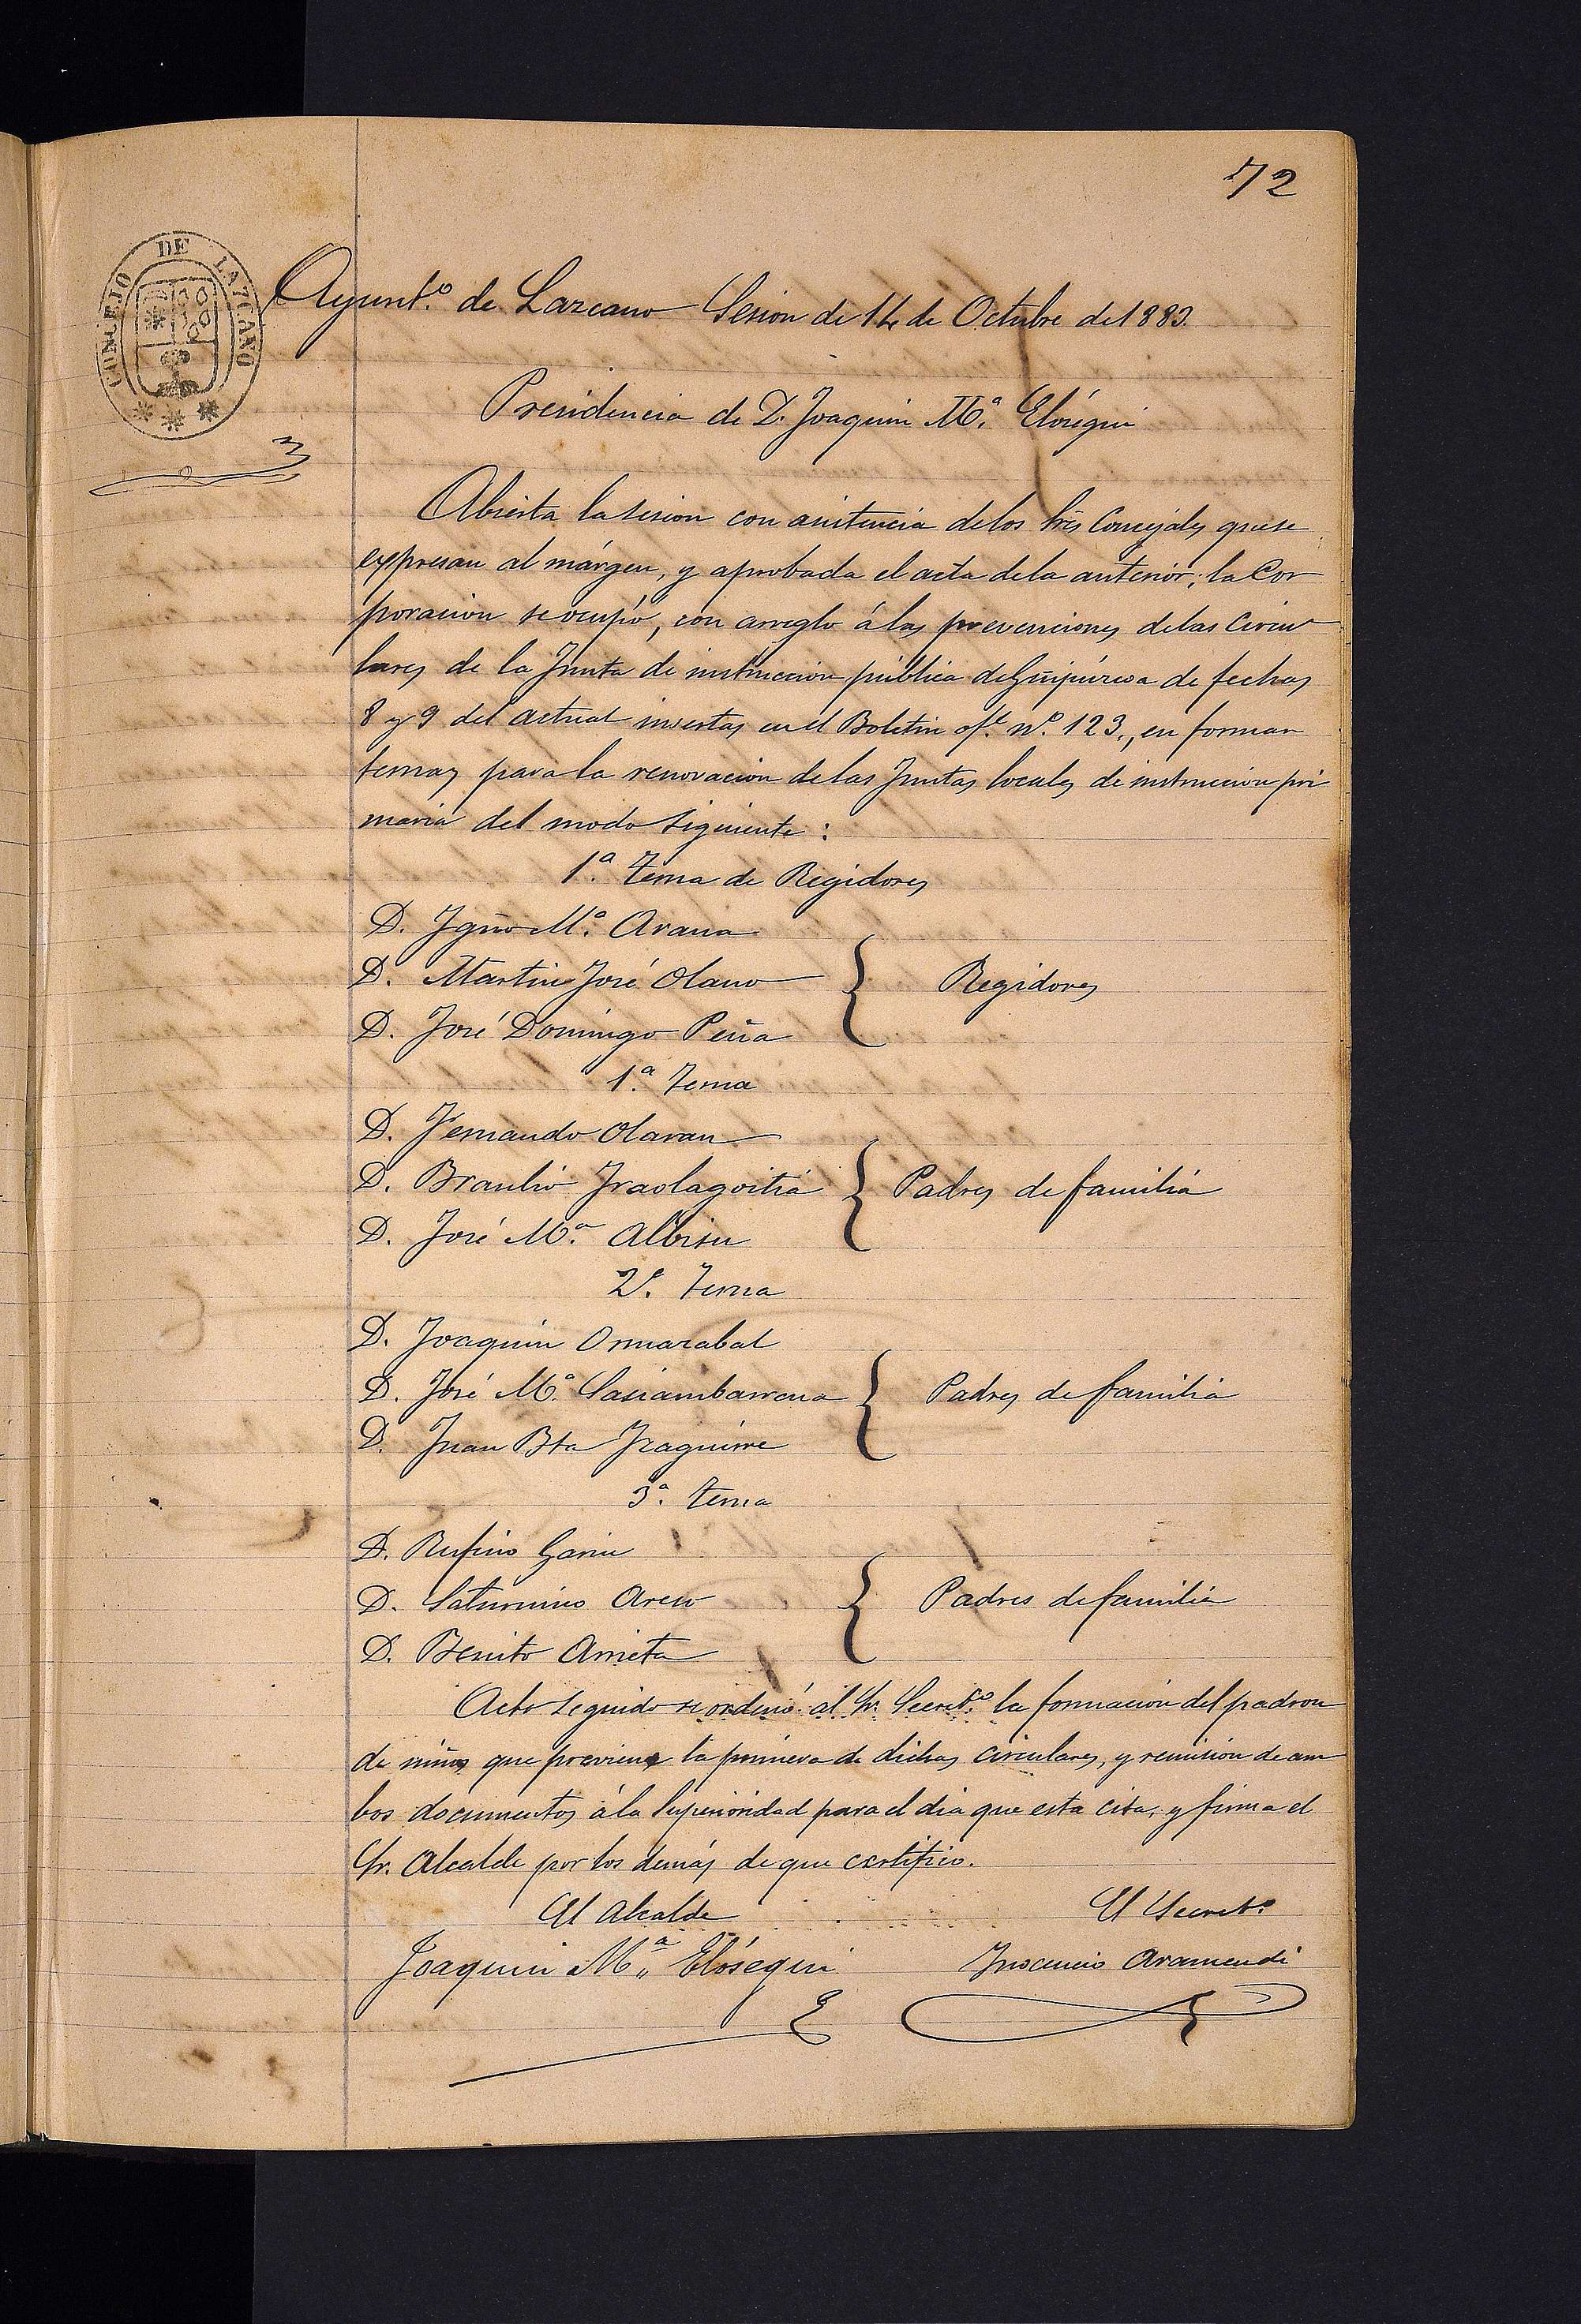 72
CONCEJO DE LAZCANO
Ayunt.º de Lazcano Sesion de 14 de Octubre de 1883.
Presidencia de D. Joaquin M.ª Elósegui
Abierta la sesion con asistencia de los Srēs Concejales que se
expresan al márgen, y aprobada el acta de la anterior; la Cor
poracion se ocupó, con arreglo á las prevenciones de las Circu
lares de la Junta de instruccion pública de Guipúzcoa de fechas
8 y 9 del actual insertas en el Boletin of.l n.º 123., en formar
ternas para la renovacion de las Juntas locales de instruccion pri
maria del modo siguiente:
1.ª terna de Regidores
D. Ygno M.ª Arana
D. Martin José Olano
Regidores
D. José Domingo Peña
1.ª Terna
D. Fernando Olaran
D. Braulio Yraolagoitia
Padres de familia
D. José M.ª Albisu
2.ª Terna
D. Joaquin Ormazabal
D. José M.ª Sasiambarrena
Padres de familia
D. Juan Bta Yzaguirre
3.ª terna
D. Rufino Garin
D. Saturnino
Padres de familia
D. Benito Arrieta
Acto seguido se ordenó al Sr. Secret.º la formacion del padron
de niños que previene la primera de dichas circulares, y remision de am
bos documentos á la Superioridad para el dia que esta cita; y firma el
Sr. Alcalde por los demás de que certifico.
El Alcalde
El Secret.º
Joaquin M.ª Elósegui
Inocencio Aramendi